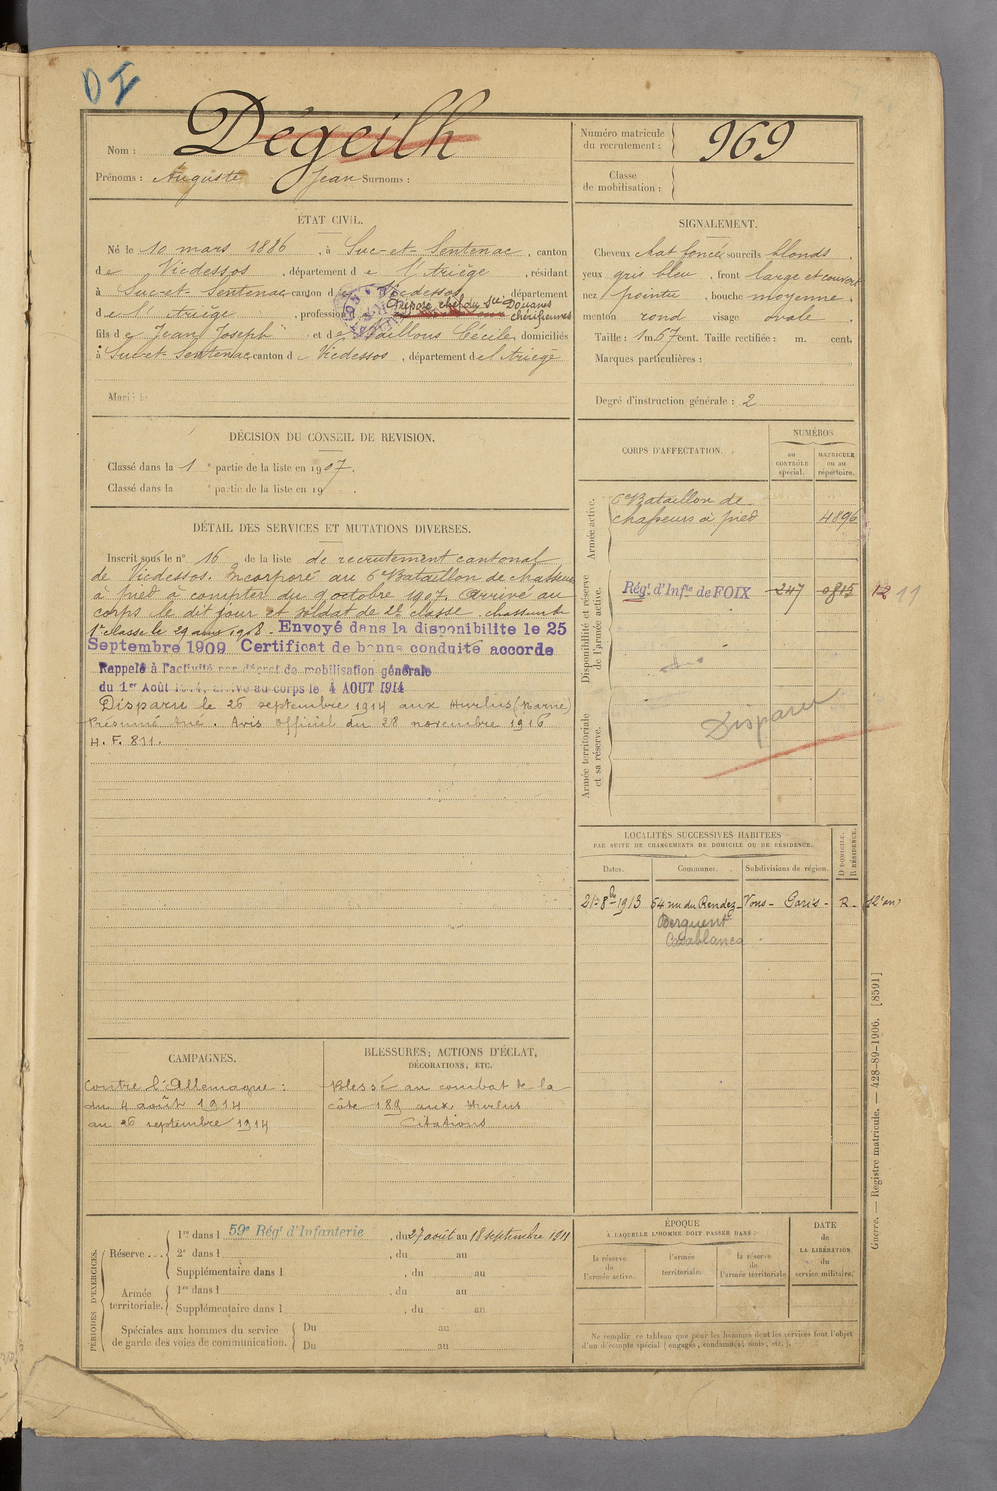 DI
Nom : Dégeilh
Prénoms : Auguste Jean Surnoms :
Numéro matricule du recrutement : 969
Classe de mobilisation :
ÉTAT CIVIL.
Né le 10 mars 1886, à Suc-et-Sentenac, canton
de Vicdessos, département de l'Ariège, résidant
à Suc-et-Sentenac canton de Vicdessos, département
de l'Ariège, profession d Préposé chef du Douanes chérifiennes
fils de Jean Joseph et de Cécile, domiciliés
à Suc-et-Sentenac canton de Vicdessos, département de l'Ariège
Marié le
SIGNALEMENT.
Cheveux chat foncé sourcils blonds,
yeux gris bleu, front large et couvert
nez pointu, bouche moyenne,
menton rond visage ovale.
Taille : 1 m. 67 cent. Taille rectifiée : m. cent.
Marques particulières :
Degré d'instruction générale : 2
DÉCISION DU CONSEIL DE REVISION.
Classé dans la 1e partie de la liste en 1907.
Classé dans la e partie de la liste en 19 .
DÉTAIL DES SERVICES ET MUTATIONS DIVERSES.
Inscrit sous le n° 16 de la liste de recrutement cantonal
de Vicdessos. Incorporé au 6e Bataillon de chasseurs
à pied à compter du 9 octobre 1907. Arrivé au
corps le dit jour et soldat de 2e classe. chasseur de
1e classe le 29 1908. Envoyé dans la disponibilite le 25
Septembre 1909 Certificat de bonne conduite accorde
Rappelé à l'activité par décret de mobilisation générale
du 1er Août 1914, arrivé au corps le 4 AOUT 1914
Disparu le 26 septembre 1914 aux Hurlus (Marne)
Présumé tué. Avis officiel du 28 novembre 1916
H. F. 811.
CORPS D'AFFECTATION.
NUMÉROS
au CONTRÔLE spécial.
MATRICULE ou au répertoire.
Armée active.
6e Bataillon de
chasseurs à pied 4896
Disponibilité et réserve de l'armée active.
Régt. d'Inftie de FOIX 247 0815 12 11
Armée territoriale et sa réserve.
Disparu
LOCALITÉS SUCCESSIVES HABITÉES
PAR SUITE DE CHANGEMENTS DE DOMICILE OU DE RÉSIDENCE.
Dates. Communes. Subdivisions de région. D DOMICILE. R RÉSIDENCE.
21-8b-1913 54 rue du Rendez-Vous - Paris - R - (12e arr)
Berguent
Casablanca
CAMPAGNES.
Contre l'Allemagne :
du 4 août 1914
au 26 septembre 1914
BLESSURES, ACTIONS D'ÉCLAT,
DÉCORATIONS, ETC.
Blessé au combat de la
côte 189 aux Hurlus
Citations
PÉRIODES D'EXERCICES.
Réserve...
1re dans l 59e Régt d'Infanterie, du 27 août au 18 septembre 1911
2e dans l , du au
Supplémentaire dans l , du au
Armée territoriale.
1re dans l , du au
Supplémentaire dans l , du au
Spéciales aux hommes du service de garde des voies de communication.
Du au
Du au
ÉPOQUE
À LAQUELLE L'HOMME DOIT PASSER DANS :
la réserve de l'armée active.
l'armée territoriale.
la réserve de l'armée territoriale
DATE de LA LIBÉRATION du service militaire.
Ne remplir ce tableau que pour les hommes dont les services font l'objet
d'un décompte spécial (engagés, condamnés, omis, etc.).
Guerre. — Registre matricule. — 428-89-1906. [8591]